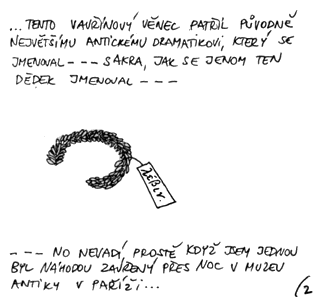 ...TENTO VAVŘÍNOVÝ VĚNEC PATŘIL PŮVODNĚ
NEJVĚTŠÍMU ANTICKÉMU DRAMATIKOVI, KTERÝ SE
JMENOVAL --- SAKRA, JAK SE JENOM TEN
DĚDEK JMENOVAL ---
--- NO NEVADÍ, PROSTĚ KDYŽ JSEM JEDNOU
BYL NÁHODOU ZAVŘENÝ PŘES NOC V MUZEU
ANTIKY V PAŘÍŽI...
(2